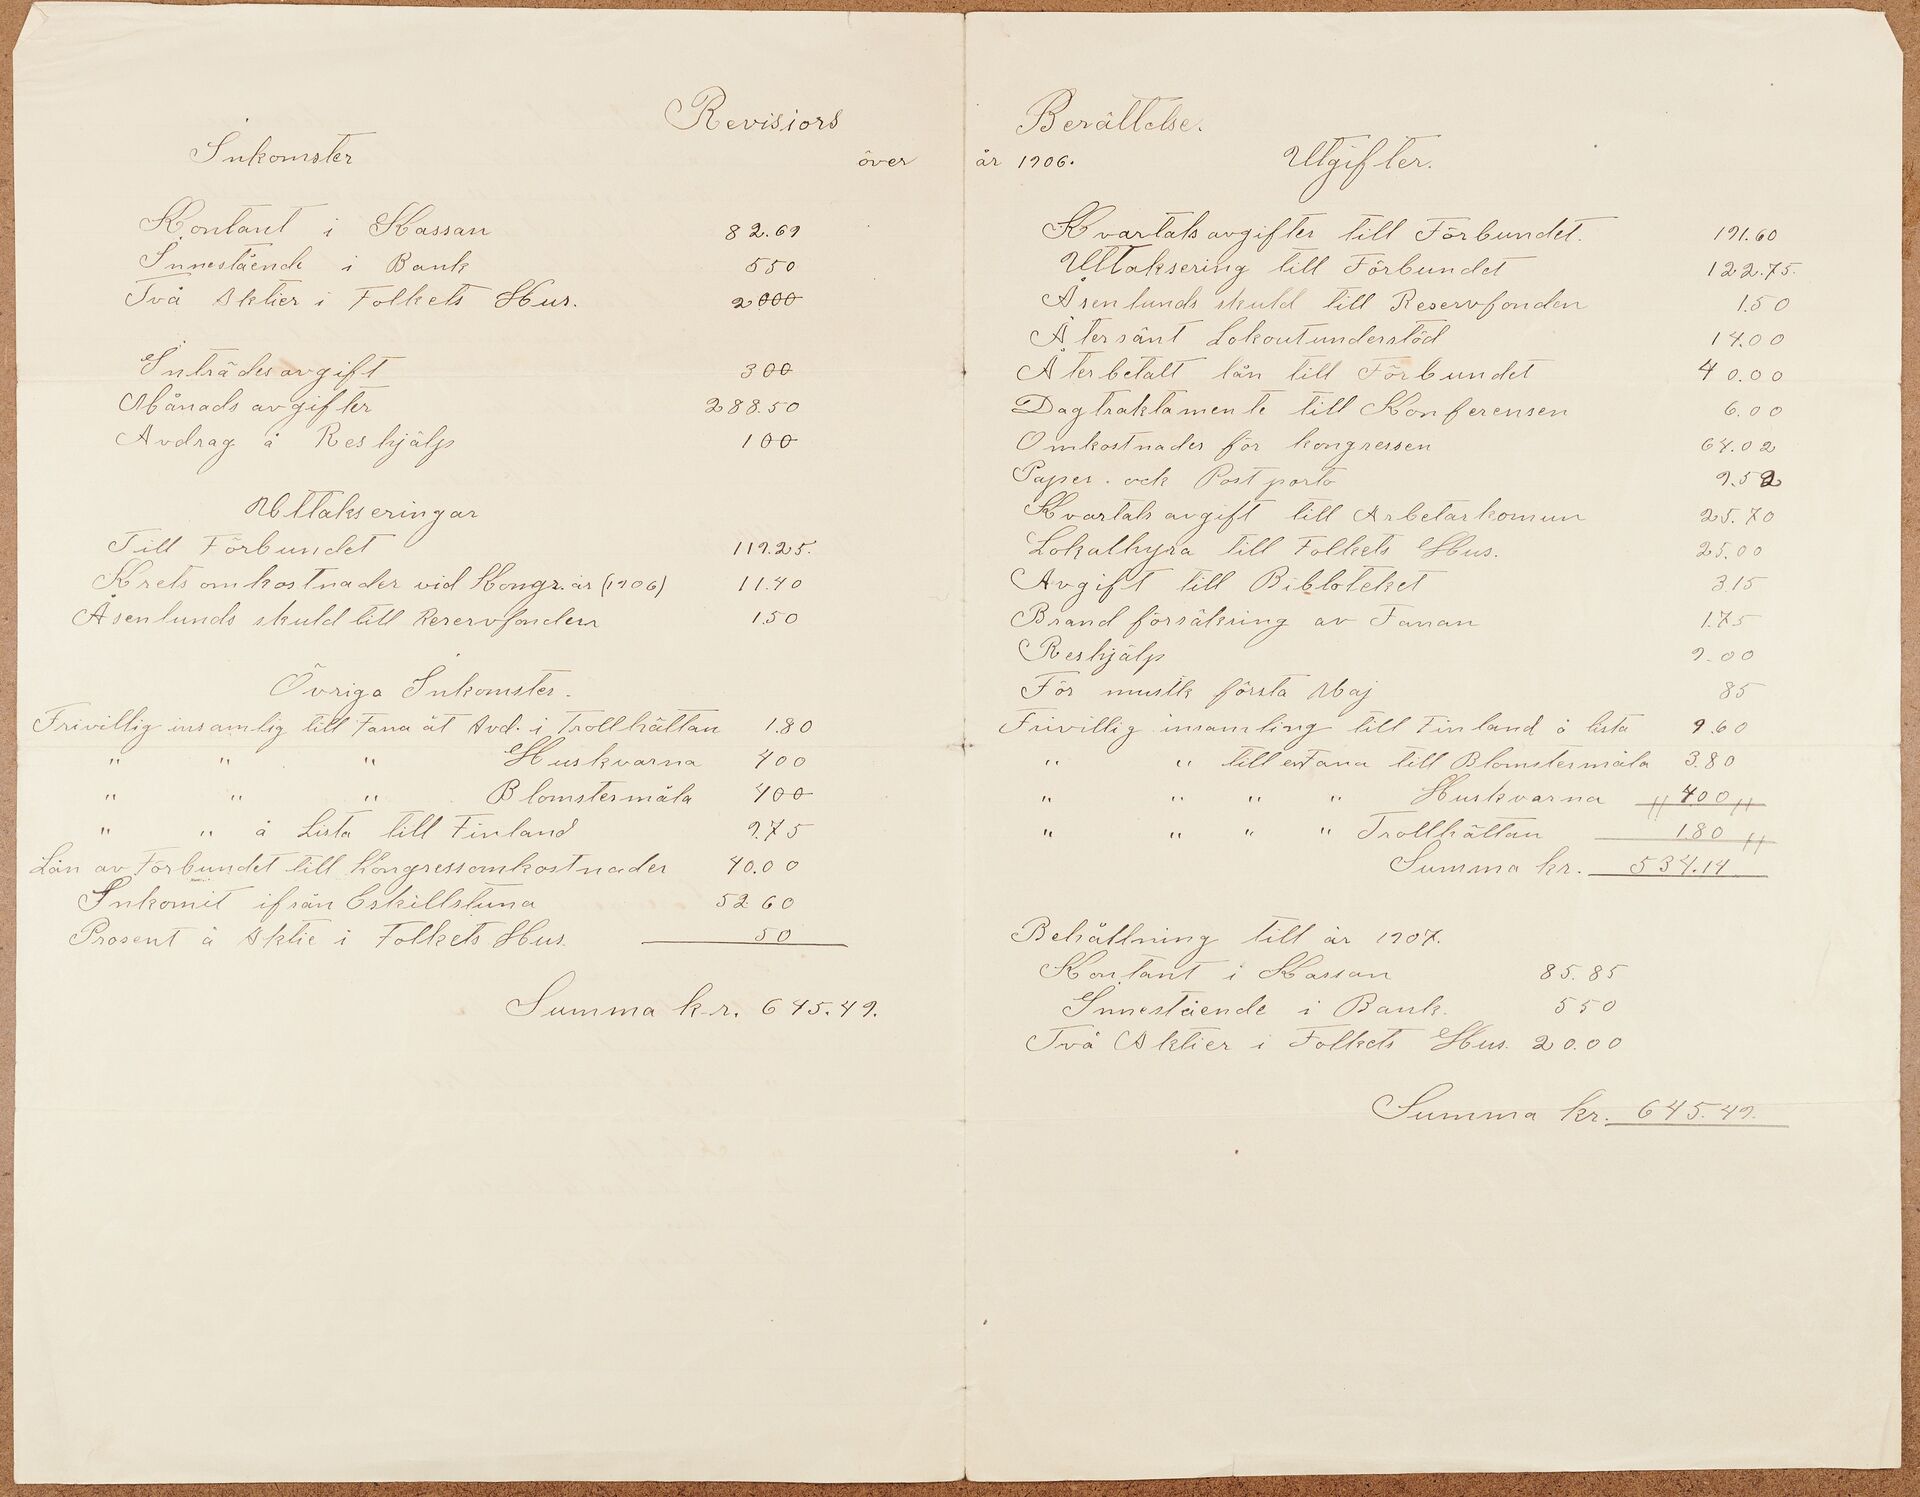 Revisiors Berättelse.
över år 1906.
Inkomster
Kontant i Kassan 82.69
Innestående i Bank 550
Två Aktier i Folkets Hus. 2000
Inträdesavgift 300
Månadsavgifter 288.50
Avdrag å Reshjälp 100
Uttakseringar
Till Förbundet 119.25.
Kretsomkostnader vid Kongr. år (1906) 11.40
Åsenlunds skuld till Reservfonden 1.50
Övriga Inkomster.
Frivillig insamlig till Fana åt Avd. i Trollhättan 1.80
" " " Huskvarna 400
" " " Blomstermåla 400
" " å Lista till Finland 9.75
Lån av Förbundet till Kongressomkostnader 40.00
Inkomit ifrån Eskillstuna 52.60
Prosent å Aktie i Folkets Hus. 50
Summa kr. 645.49.
Utgifter.
Kvartalsavgifter till Förbundet. 191.60
Uttaksering till Förbundet 122.75.
Åsenlunds skuld till Reservfonden 1.50
Återsänt Lokoutunderstöd 14.00
Återbetalt lån till Förbundet 40.00
Dagtraktamente till Konferensen 6.00
Omkostnader för kongressen 64.02
Paper. ock Postporto 9.52
Kvartalsavgift till Arbetarkomun 25.70
Lokalhyra till Folkets Hus. 25.00
Avgift till Bibloteket 3.15
Brandförsäkring av Fanan 1.75
Reshjälp 9.00
För musik första Maj 85
Frivillig insamling till Finland å lista 9.60
" " till en Fana till Blomstermåla 3.80
" " " " Huskvarna 400
" " " " Trollhättan 1.80
Summa kr. 534.14
Behållning till år 1907.
Kontant i Kassan 85.85
Innestående i Bank. 550
Två Aktier i Folkets Hus. 20.00
Summa kr. 645.49.